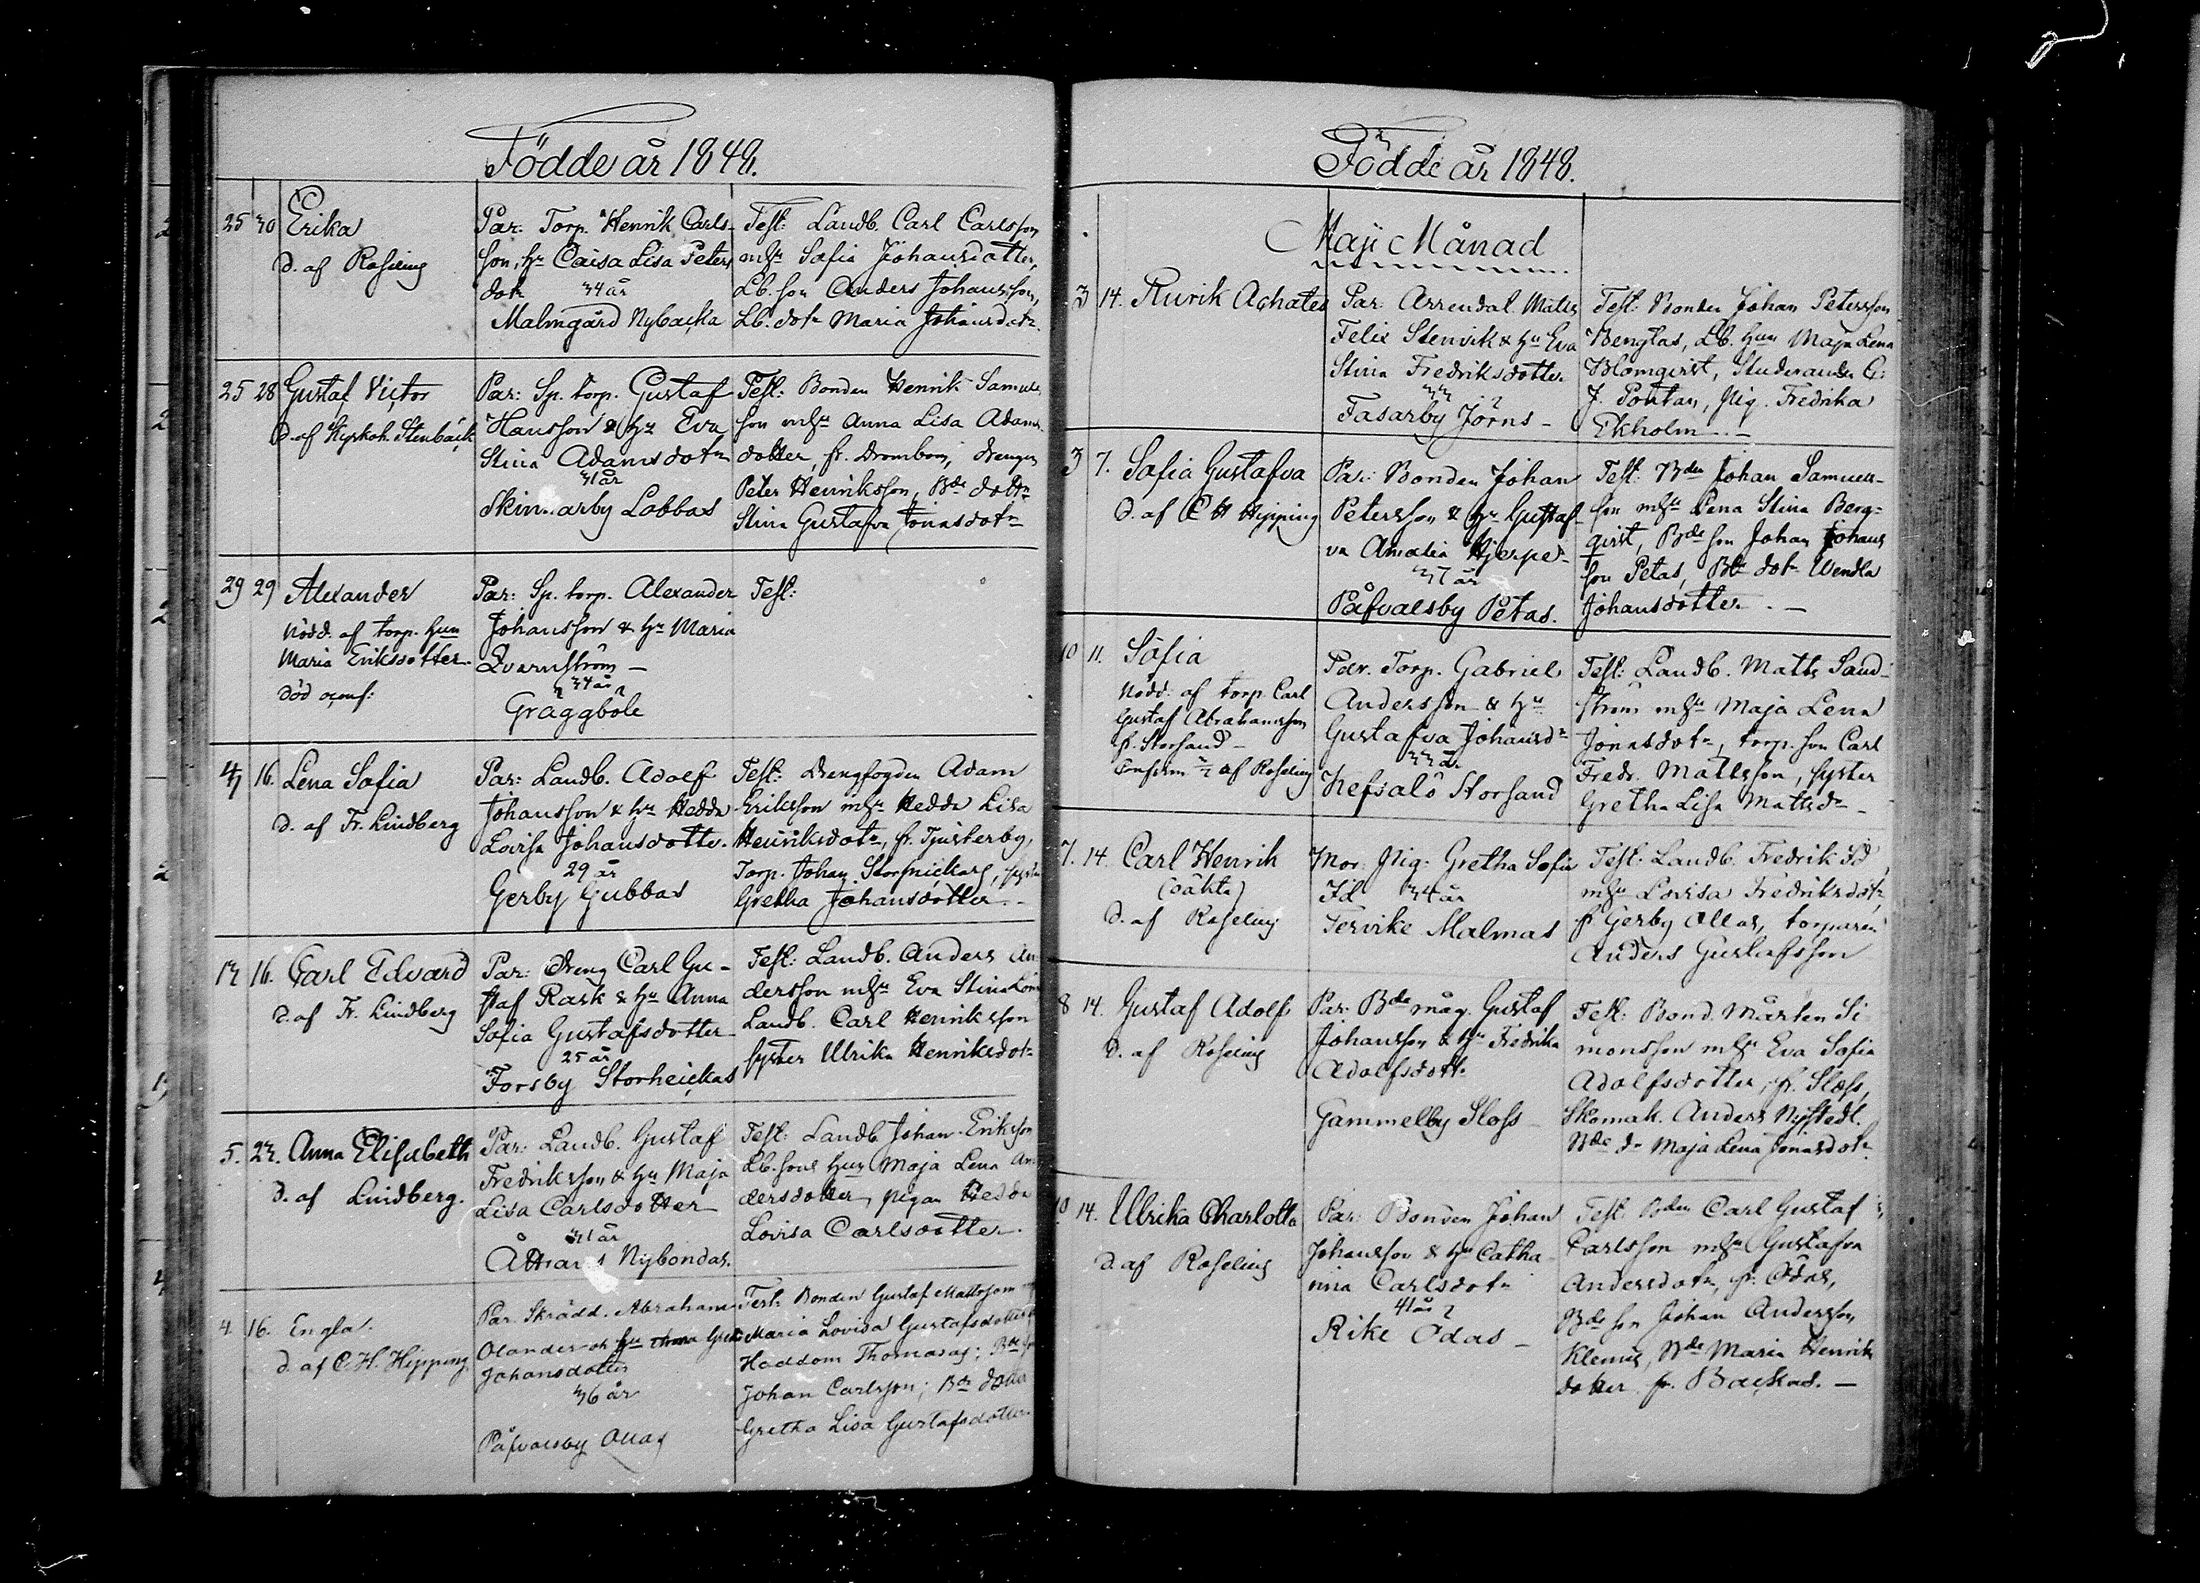 Födde år 1848.
25 30 Erika
d. af Roseling
Par: Torp. Henrik Carls-
son, hu Caisa Lisa Peters
dotr 34 år
Malmgård Nybacka
Test: Landb. Carl Carlsson
mhu Sofia Johansdotter,
Lb. son Anders Johansson,
Lb. dotr Maria Johansdotr.
25 28 Gustaf Victor
d. af Kyrkoh. Stenbäck
Par: Sp. torp. Gustaf
Hansson & hu Eva
Stina Adamsdotr
31 år
Skinnarby Lobbas
Test: Bonden Henrik Samuels
son mhu Anna Lisa Adams-
dotter, fr. Drombom, Drengen
Peter Henriksson, Bde dotr
Stina Gustafva Jonasdotr
29 29 Alexander
Nödd. af torp. hun
Maria Eriksdotter.
död oconf:
Par: Sp. torp. Alexander
Johansson & hu Maria
Qvarnström —
34 år
Graggböle
Test:
4 16. Lena Sofia
d. af Fr. Lindberg
Par: Landb. Adolf
Johansson & hu Hedda
Lovisa Johansdotter.
29 år
Gerby Gubbas
Test: Drengfogden Adam
Eriksson mhu Hedda Lisa
Henriksdotr, fr. Tjusterby,
Torp. Johan
Gretha Johansdotter.
13 16. Carl Edvard
d. af Fr. Lindberg
Par: Dreng Carl Gu-
staf Rask & hu Anna
Sofia Gustafsdotter
25 år
Forsby Storheickas
Test: Landb. Anders An-
dersson mhu Eva Stina
Landb. Carl Henriksson
syster Ulrika Henriksdotr
5. 23. Anna Elisabeth
d. af Lindberg.
Par: Landb. Gustaf
Fredriksson & hu Maja
Lisa Carlsdotter
31 år
Nybondas.
Test: Landb. Johan Eriksson
Lb. sons hun Maja Lena An-
dersdotter, pigan Hedda
Lovisa Carlsdotter.
4. 16. Engla.
d. af C. H. Hipping
Par. Skrädd. Abraham
Olander och hu Anna Greta
Johansdotter
36 år
Påfvalsby Allas
Test: Bonden Gustaf Mattsson
Maria Lovisa Gustafsdotter
Haddom Thomasas; Bde son
Johan Carlsson; Bde dotter
Gretha Lisa Gustafsdotter
Födde år 1848.
Maji Månad
3 14. Rurik Achates
Par: Arrendat. Matts
Felix Stenvik & hu Eva
Stina Fredriksdotter
33
Fasarby Jörns -
Test: Bonden Johan Petersson
Bengtas, Lb. hun Maja Lena
Blomqvist, Studeranden C.
J. Pontan, Pig. Fredrika
Ekholm —
3 7. Sofia Gustafva
d. af C H Hipping
Par: Bonden Johan
Petersson & hu Gustaf-
va Amalia Hjerpe.
37 år
Påfvalsby Petas.
Test: Bden Johan Samuels-
son mhu Lena Stina Berg-
qvist, Bde son Johan Johans
son Petas, Bde dotr Wendla
Johansdotter. —
10 11. Sofia
Nödd. af torp. Carl
Gustaf Abrahamsson
fr. Storsand —
Confirm af Roseling
Par. Torp. Gabriel
Andersson & hu
Gustafva Johansdr
33 år
Kefsalö Storsand
Test: Landb. Matts Sand-
ström mhu Maja Lena
Jonasdotr, torp. son Carl
Fredr. Mattsson, syster
Gretha Lisa Mattsdr
7. 14. Carl Henrik
(oäkta)
d. af Roseling
Mor. Pig: Gretha Sofia
Id 34 år
Tervike Malmas
Test: Landb. Fredrik Id
mhu Lovisa Fredriksdotr,
fr Gerby Allas, torparen
Anders Gustafsson
8 14. Gustaf Adolf
d. af Roseling
Par: Bde måg Gustaf
Johansson & hu Fredrika
Adolfsdotr
Gammelby Sloss
Test: Bond. Mårten Si-
monsson mhu Eva Sofia
Adolfsdotter, fr. Sloss,
Skomak. Anders Nystedt.
Bde dr Maja Lena Jonasdotr
10 14. Ulrika Charlotta
d. af Roseling
Par: Bonden Johan
Johansson & hu Catha-
rina Carlsdotr
41 år
Rike Odas —
Test: Bden Carl Gustaf
Carlsson mhu Gustafva
Andersdotr, fr. Odas,
Bde son Johan Andersson
Klemis, Bde Maria Henriks
dotter fr. Backas. —